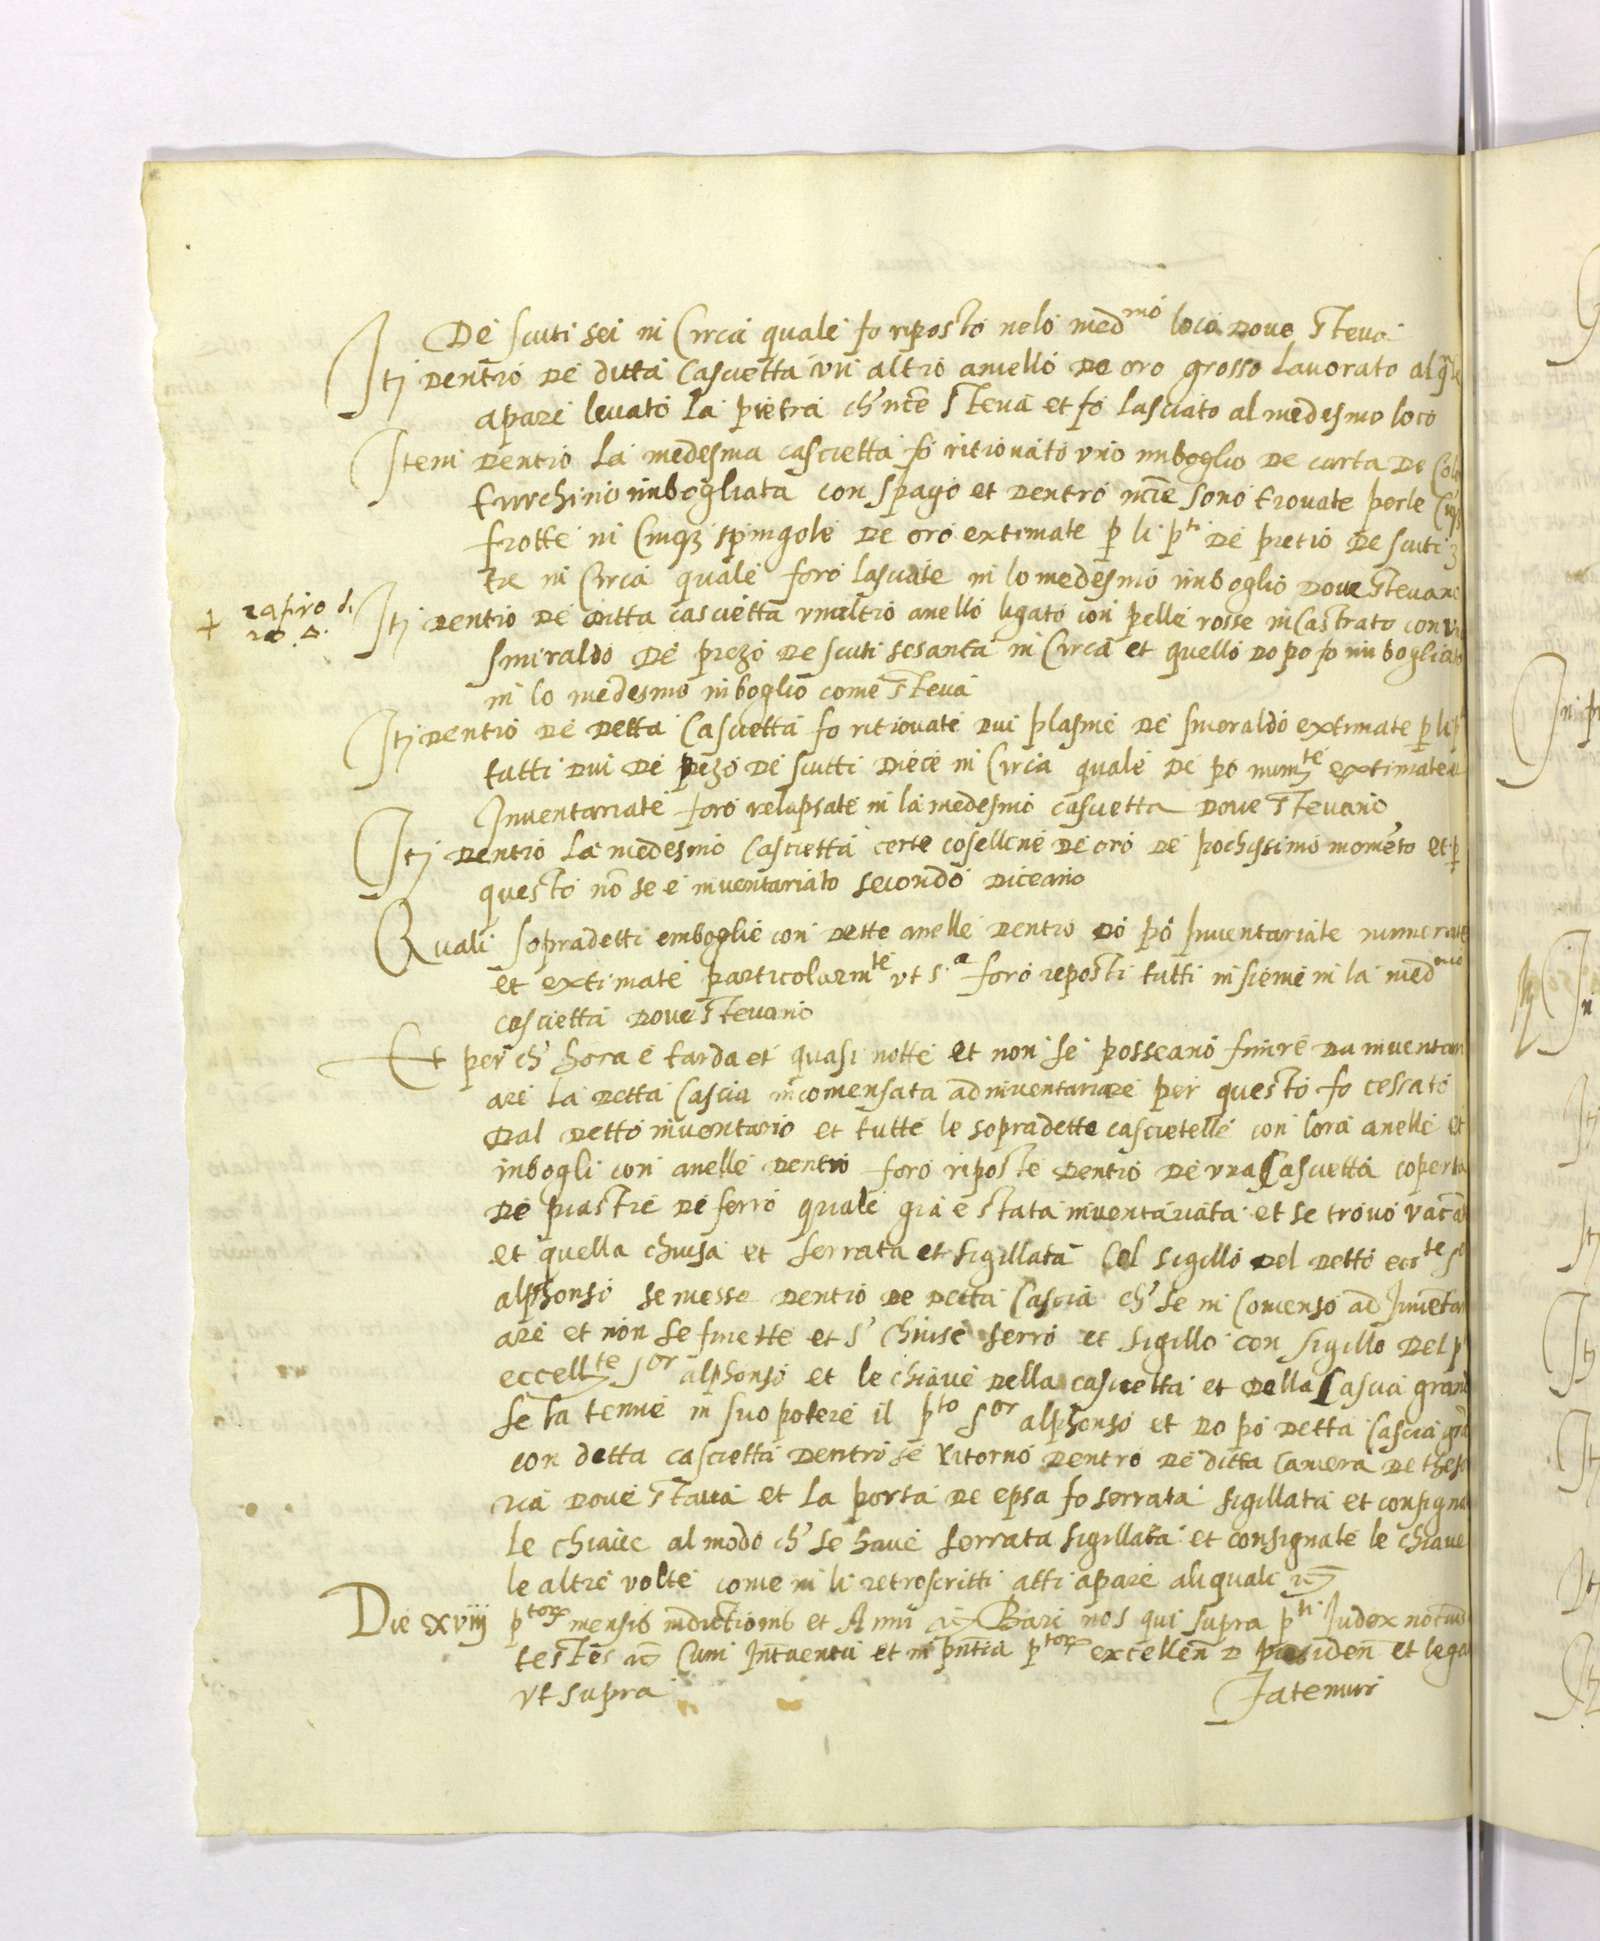 De scuti sei in Circa quale fo riposto nelo med.mo loco dove steva
Itj dentro de ditta Cascietta un altro anello de oro grosso lavorato al q̃le
apare levato la pietra ch' nce steva et fo lasciato al medesmo loco
Item dentro la medesma cascietta fo ritrovato uno imboglio de carta de
turchino imbogliata con spago et dentro nc̃e sono trovate perle
frotte in Cinq3 spingole de oro extimate p li p.ti de pretio de scuti
tre in Circa quale foro lasciate in lo medesmo imboglio dove stevano
+ zafiro di
20 Δ.
Itj dentro de ditta cascietta unaltro anello ligato con pelle rosse incastrato con
smiraldo de prezo de scuti sesanta in Circa et quello dopo fo imbogliato
in lo medesmo inboglio come steva
Itj dentro de detta Cascietta fo ritrovate dui plasme de smeraldo extimate p li
tutti dui de pezo de scutti diece in Circa quale de po num.te extimate
Inventariate foro relapsate in la medesmo cascietta dove stevano
Itj dentro la medesmo Cascietta certe coselline de oro de pochissimo momẽto et p
questo nõ se e inventariato secondo diceano
Quali sopradetti emboglie con dette anelle dentro do po Inventariate numerate
et extimate particolarm.te ut s.a foro reposti tutti insieme in la med.mo
cascietta dove stevano
Et per ch' hora e tarda et quasi notte et non se posseano finire da inventari
are la detta Cascia incomensata ad inventariare per questo fo cessato
dal detto inventario et tutte le sopradette cascietelle con lora anelle et
inbogli con anelle dentro foro riposte dentro de una Cascietta coperta
de piastre de ferro quale gia e stata inventariata et se trovo
et quella chiusa et serrata et sigillata Col sigillo del detto ecc.te
alphonso se messe dentro de detta Cascia ch' se in Comenso ad
are et non se finette et s' chiuse serro et sigillo con sigillo del p
eccell.te s.or alphonso et le chiave della cascietta et della Cascia
se la tenne in suo potere il p.to s.or alphonso et do po detta Cascia
con detta cascietta dentro se ritorno dentro de ditta Camera de
ria dove stava et la porta de epsa fo serrata sigillata et
le chiave al modo ch' se have serrata sigillata et consignate le chiave
le altre volte come in li retroscritti atti apare ali quali
Die xviij p.tor mensis indictionis et Anni Bari nos qui supra p.ti Iudex
testes Cum Int̃ventu et in pñtia p.tor excellen̄ D presiden̄ et
ut supra
Fatemur